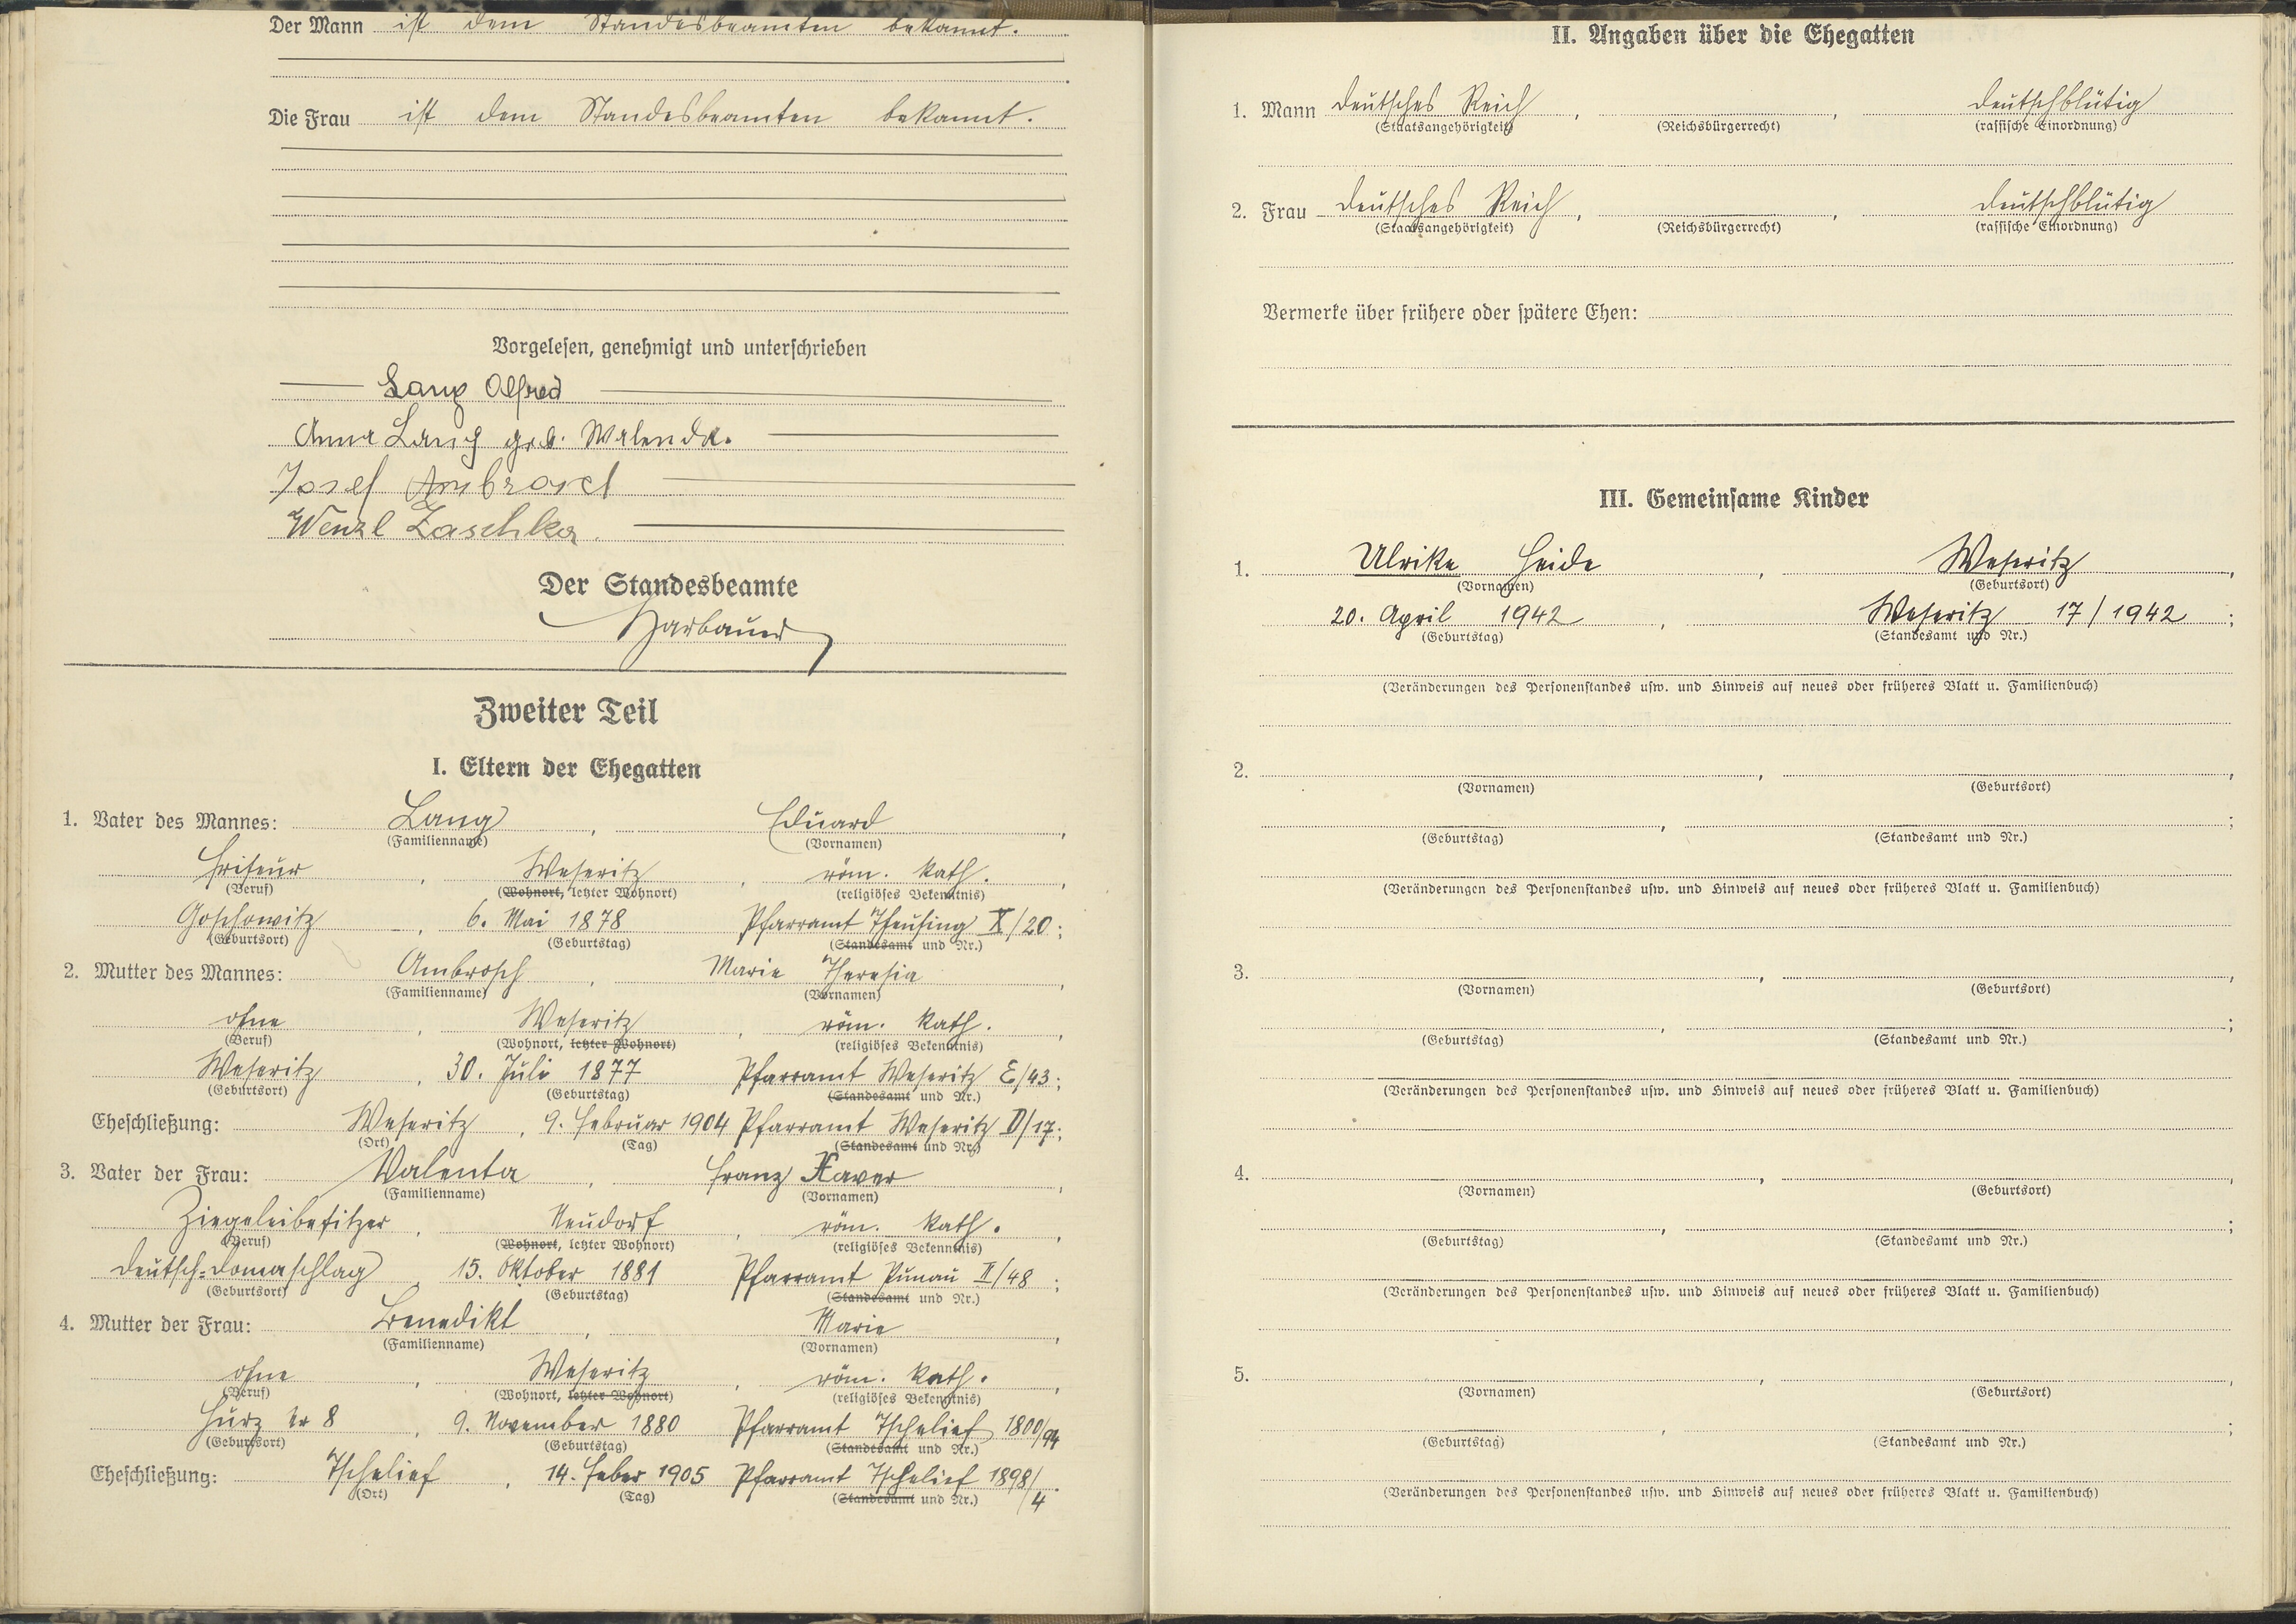 Der Mann ist dem Standesbeamten bekannt.
Die Frau ist dem Standesbeamten bekannt.
Vorgelesen, genehmigt und unterschrieben
Lang Alfred
Anna Lang geb. Walenda.
Josef Ambrosch
Wenzl Zaschka.
Der Standesbeamte
Harbauer
Zweiter Teil
I. Eltern der Ehegatten
1. Vater des Mannes: Lang , Eduard ,
(Familienname) (Vornamen)
Friseur , Weseritz , röm. kath. ,
(Beruf) (Wohnort, letzter Wohnort) (religiöses Bekenntnis)
Goschowitz , 6. Mai 1878 Pfarramt Theusing X/20 ;
(Geburtsort) (Geburtstag) (Standesamt und Nr.)
2. Mutter des Mannes: Ambrosch , Marie Theresia ,
(Familienname) (Vornamen)
ohne , Weseritz , röm. kath. ,
(Beruf) (Wohnort, letzter Wohnort) (religiöses Bekenntnis)
Weseritz , 30. Juli 1877 Pfarramt Weseritz E/43 ;
(Geburtsort) (Geburtstag) (Standesamt und Nr.)
Eheschließung: Weseritz , 9. Februar 1904 Pfarramt Weseritz D/17 ;
(Ort) (Tag) (Standesamt und Nr.)
3. Vater der Frau: Walenta , Franz Xaver ,
(Familienname) (Vornamen)
Ziegeleibesitzer , Neudorf , röm. kath. ,
(Beruf) (Wohnort, letzter Wohnort) (religiöses Bekenntnis)
Deutsch-Domaschlag , 15. Oktober 1881 Pfarramt Punau II/48 ;
(Geburtsort) (Geburtstag) (Standesamt und Nr.)
4. Mutter der Frau: Benedikt , Marie ,
(Familienname) (Vornamen)
ohne , Weseritz , röm. kath. ,
(Beruf) (Wohnort, letzter Wohnort) (religiöses Bekenntnis)
Hurz Nr 8 , 9. November 1880 Pfarramt Tschelief 1800/94
(Geburtsort) (Geburtstag) (Standesamt und Nr.)
Eheschließung: Tschelief , 14. Feber 1905 Pfarramt Tschelief 1898/4 .
(Ort) (Tag) (Standesamt und Nr.)
II. Angaben über die Ehegatten
1. Mann Deutsches Reich , , deutschblütig
(Staatsangehörigkeit) (Reichsbürgerrecht) (rassische Einordnung)
2. Frau Deutsches Reich , , deutschblütig
(Staatsangehörigkeit) (Reichsbürgerrecht) (rassische Einordnung)
Vermerke über frühere oder spätere Ehen:
III. Gemeinsame Kinder
1. Ulrike Heide , Weseritz ,
(Vornamen) (Geburtsort)
20. April 1942 , Weseritz 17/1942 ;
(Geburtstag) (Standesamt und Nr.)
(Veränderungen des Personenstandes usw. und Hinweis auf neues oder früheres Blatt u. Familienbuch)
2. , ,
(Vornamen) (Geburtsort)
, ;
(Geburtstag) (Standesamt und Nr.)
(Veränderungen des Personenstandes usw. und Hinweis auf neues oder früheres Blatt u. Familienbuch)
3. , ,
(Vornamen) (Geburtsort)
, ;
(Geburtstag) (Standesamt und Nr.)
(Veränderungen des Personenstandes usw. und Hinweis auf neues oder früheres Blatt u. Familienbuch)
4. , ,
(Vornamen) (Geburtsort)
, ;
(Geburtstag) (Standesamt und Nr.)
(Veränderungen des Personenstandes usw. und Hinweis auf neues oder früheres Blatt u. Familienbuch)
5. , ,
(Vornamen) (Geburtsort)
, ;
(Geburtstag) (Standesamt und Nr.)
(Veränderungen des Personenstandes usw. und Hinweis auf neues oder früheres Blatt u. Familienbuch)